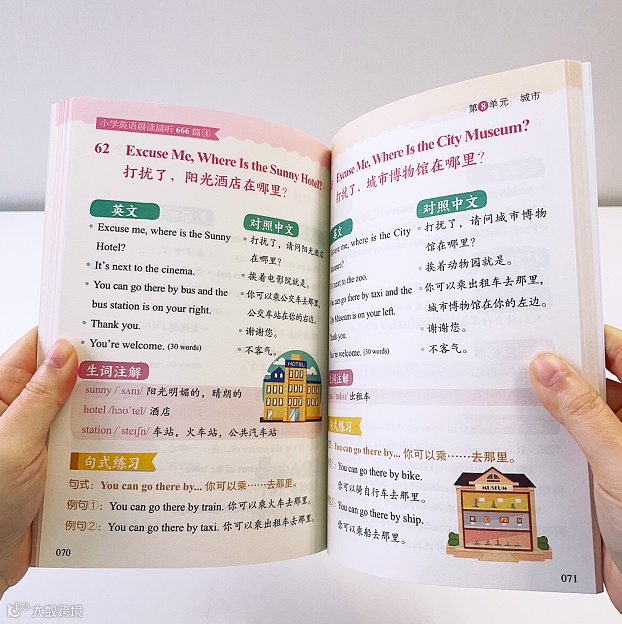 小学英语晨读晨听 666 篇④
62 Excuse Me, Where Is the Sunny Hotel?
打扰了，阳光酒店在哪里？
英文
• Excuse me, where is the Sunny
Hotel?
• It's next to the cinema.
• You can go there by bus and the
bus station is on your right.
• Thank you.
• You're welcome. (30 words)
对照中文
• 打扰了，请问阳光酒店
在哪里？
• 挨着电影院就是。
• 你可以乘公交车去那里，
公交车站在你的右边。
• 谢谢您。
• 不客气。
HOTEL
生词注解
sunny /ˈsʌnɪ/ 阳光明媚的，晴朗的
hotel /həʊˈtel/ 酒店
station /ˈsteɪʃn/ 车站，火车站，公共汽车站
句式练习
句式：You can go there by... 你可以乘……去那里。
例句①：You can go there by train. 你可以乘火车去那里。
例句②：You can go there by taxi. 你可以乘出租车去那里。
070
第⑧单元 城市
Excuse Me, Where Is the City Museum?
打扰了，城市博物馆在哪里？
英文
Excuse me, where is the City
Museum?
next to the zoo.
You can go there by taxi and the
City Museum is on your left.
Thank you.
You're welcome. (30 words)
对照中文
• 打扰了，请问城市博物
馆在哪里？
• 挨着动物园就是。
• 你可以乘出租车去那里，
城市博物馆在你的左边。
• 谢谢您。
• 不客气。
生词注解
出租车
句式练习
You can go there by... 你可以乘……去那里。
You can go there by bike.
你可以骑自行车去那里。
You can go there by ship.
你可以乘船去那里。
MUSEUM
071
大数跨境